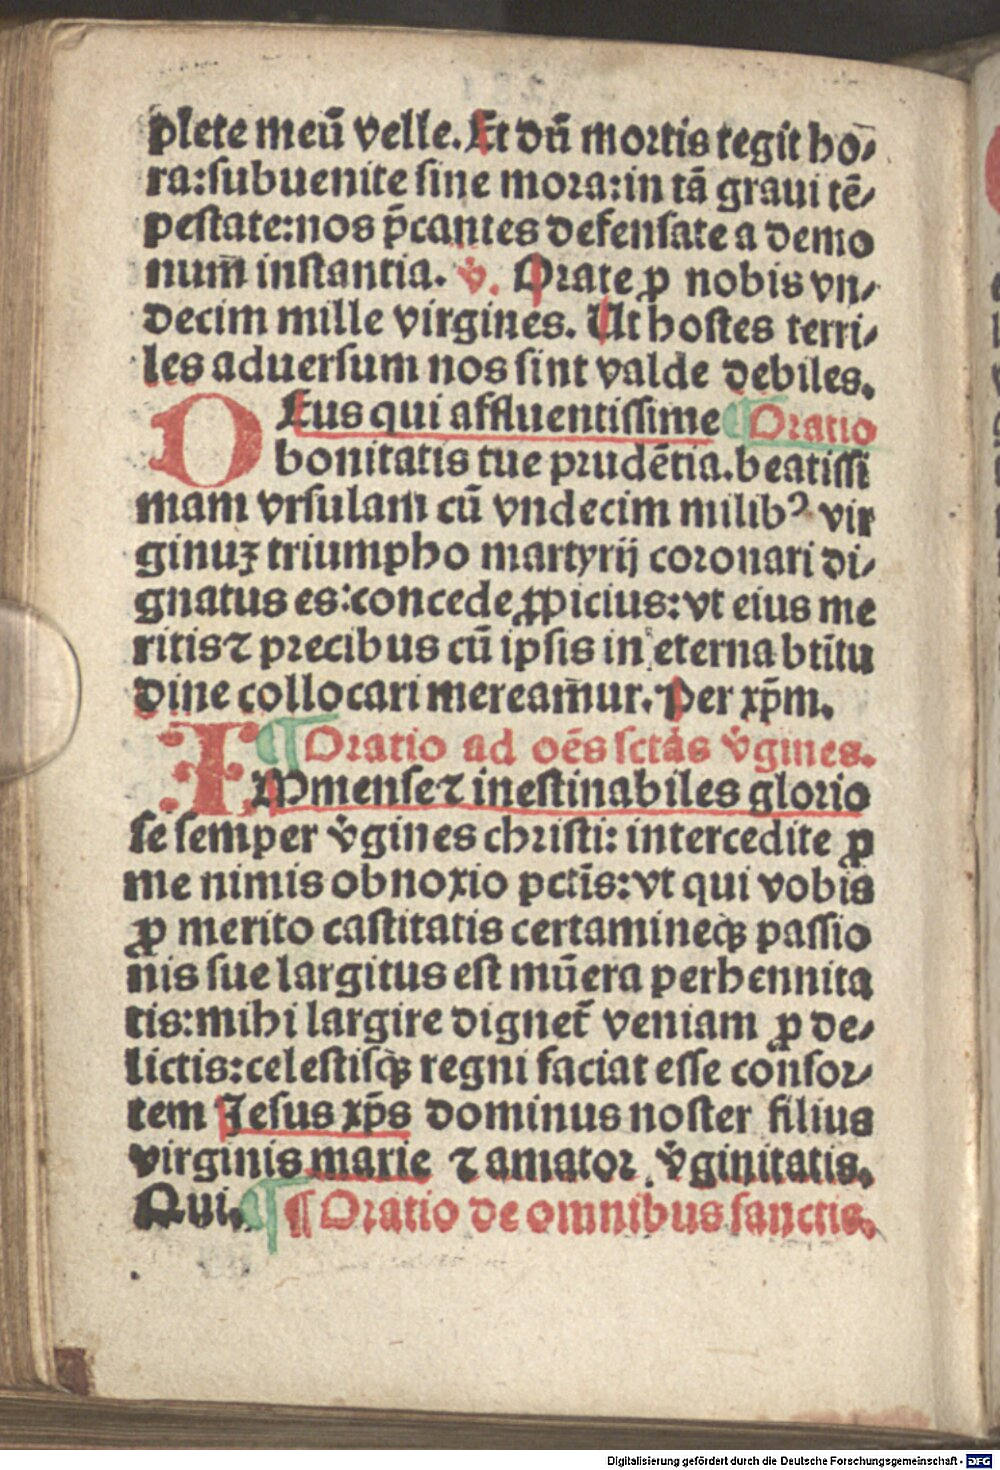 plete meū velle. Et dn̄ mortis tegit ho⸗
ra: subuenite sine mora: in tā graui tē⸗
pestate: nos p̄cantes defensate a demo
num̄ instantia. v̄. Orate ꝓ nobis vn⸗
decim mille virgines. Ut hostes terri⸗
les aduersum nos sint valde debiles.
DEus qui affluentissime ¶ Oratio
bonitatis tue prudētia. beatissi
mam vrsulam cū vndecim milibꝰ vir
ginuꝫ triumpho martyrij coronari di⸗
gnatus es: concede ꝓpicius: vt eius me
ritis ⁊ precibus cū ipsis in eterna btītu
dine collocari meream̄ur. Per xp̄m.
¶ Oratio ad oēs sctās v̄gines.
IMmense ⁊ inestinabiles glorio
se semper v̄gines christi: intercedite ꝓ
me nimis obnoxio pctīs: vt qui vobis
ꝓ merito castitatis certamineqꝫ passio
nis sue largitus est mūera perhennita
tis: mihi largire dignet̄ veniam ꝓ de⸗
lictis: celestisqꝫ regni faciat esse consor⸗
tem Jesus xp̄s dominus noster filius
virginis marie ⁊ amator v̄ginitatis.
Qui. ¶ ¶ Oratio de omnibus sanctis.
Digitalisierung gefördert durch die Deutsche Forschungsgemeinschaft - DFG